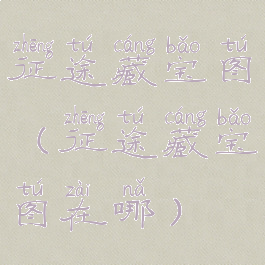 zhēng tú cáng bǎo tú
征途藏宝图
zhēng tú cáng bǎo
(征途藏宝
tú zài nǎ
图在哪)